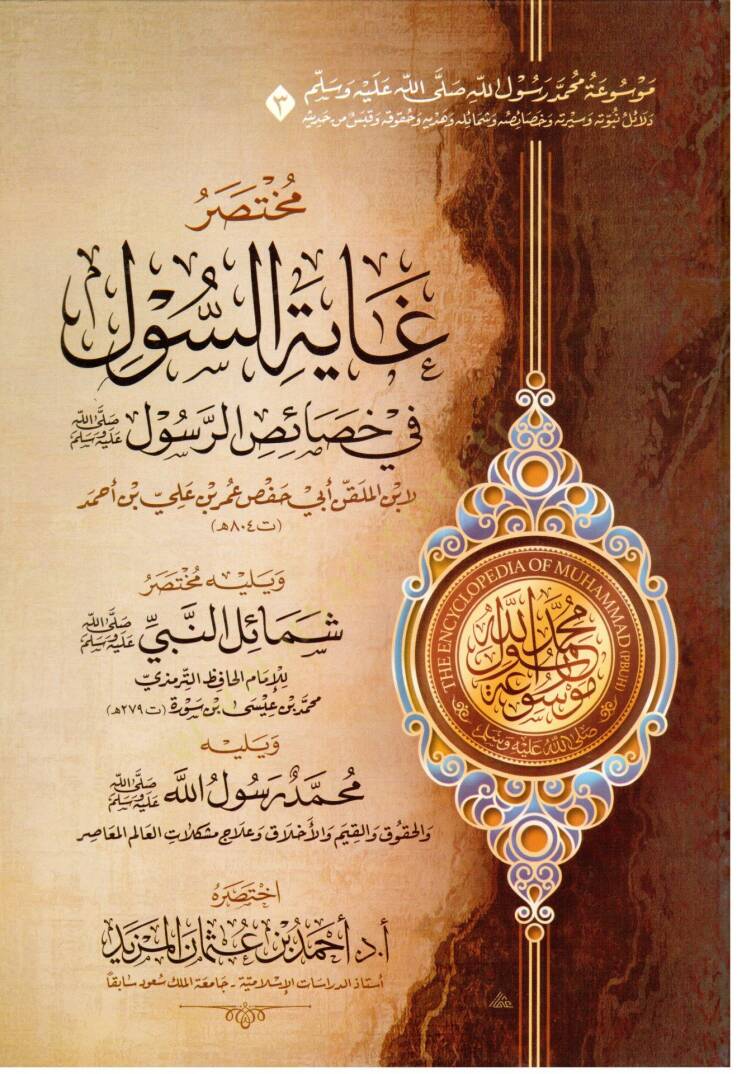 مَوْسُوعَةُ مُحَمَّد رَسُوْل اللّه صَلَّى اللّه عَلَيْه وَسَلَّم
٣
دَلَائِلُ نُبُوَّتِه وَسِيْرَتِه وَخَصَائِصِه وَشَمَائِلِه وَهَدْيِهِ وَحُقُوقِه وَقَبَسٌ مِن حَدِيثِه
مُخْتَصَرُ
غَايَةِ السُّوْلِ
فِي خَصَائِصِ الرَّسُوْلِ صَلَّى اللّه عَلَيْهِ وَسَلَّمَ
لابْنِ الملَقِّن أبي حَفْص عُمر بْن عَليّ بْن أحمَد
(ت ٨٠٤هـ)
وَيَلِيْه مُخْتَصَرُ
شَمَائِل النَّبِيِّ صَلَّى اللّه عَلَيْهِ وَسَلَّمَ
لِلإمَام الحَافِظ التِّرمِذيّ
محمَّد بْن عِيْسَى بْن سَوْرَة (ت ٢٧٩هـ)
وَيَلِيْه
مُحَمَّدٌ رَسُوْلُ اللَّه صَلَّى اللّه عَلَيْهِ وَسَلَّمَ
وَالحُقُوق وَالقِيَم وَالأَخلَاق وَعلَاج مشكلَات العَالم المعَاصِر
اخْتَصَرَهُ
أ.د أَحْمَدُ بْنُ عُثْمَانَ المَزْيَد
أستَاذ الدراسَات الإسْلاميَّة - جَامعَة الملك سُعود سَابقًا
THE ENCYCLOPEDIA OF MUHAMMAD (PBUH)
مُحَمَّد رَسُول اللّه
مَوْسُوعَة
صَلَّى اللّه عَلَيْه وَسَلَّم